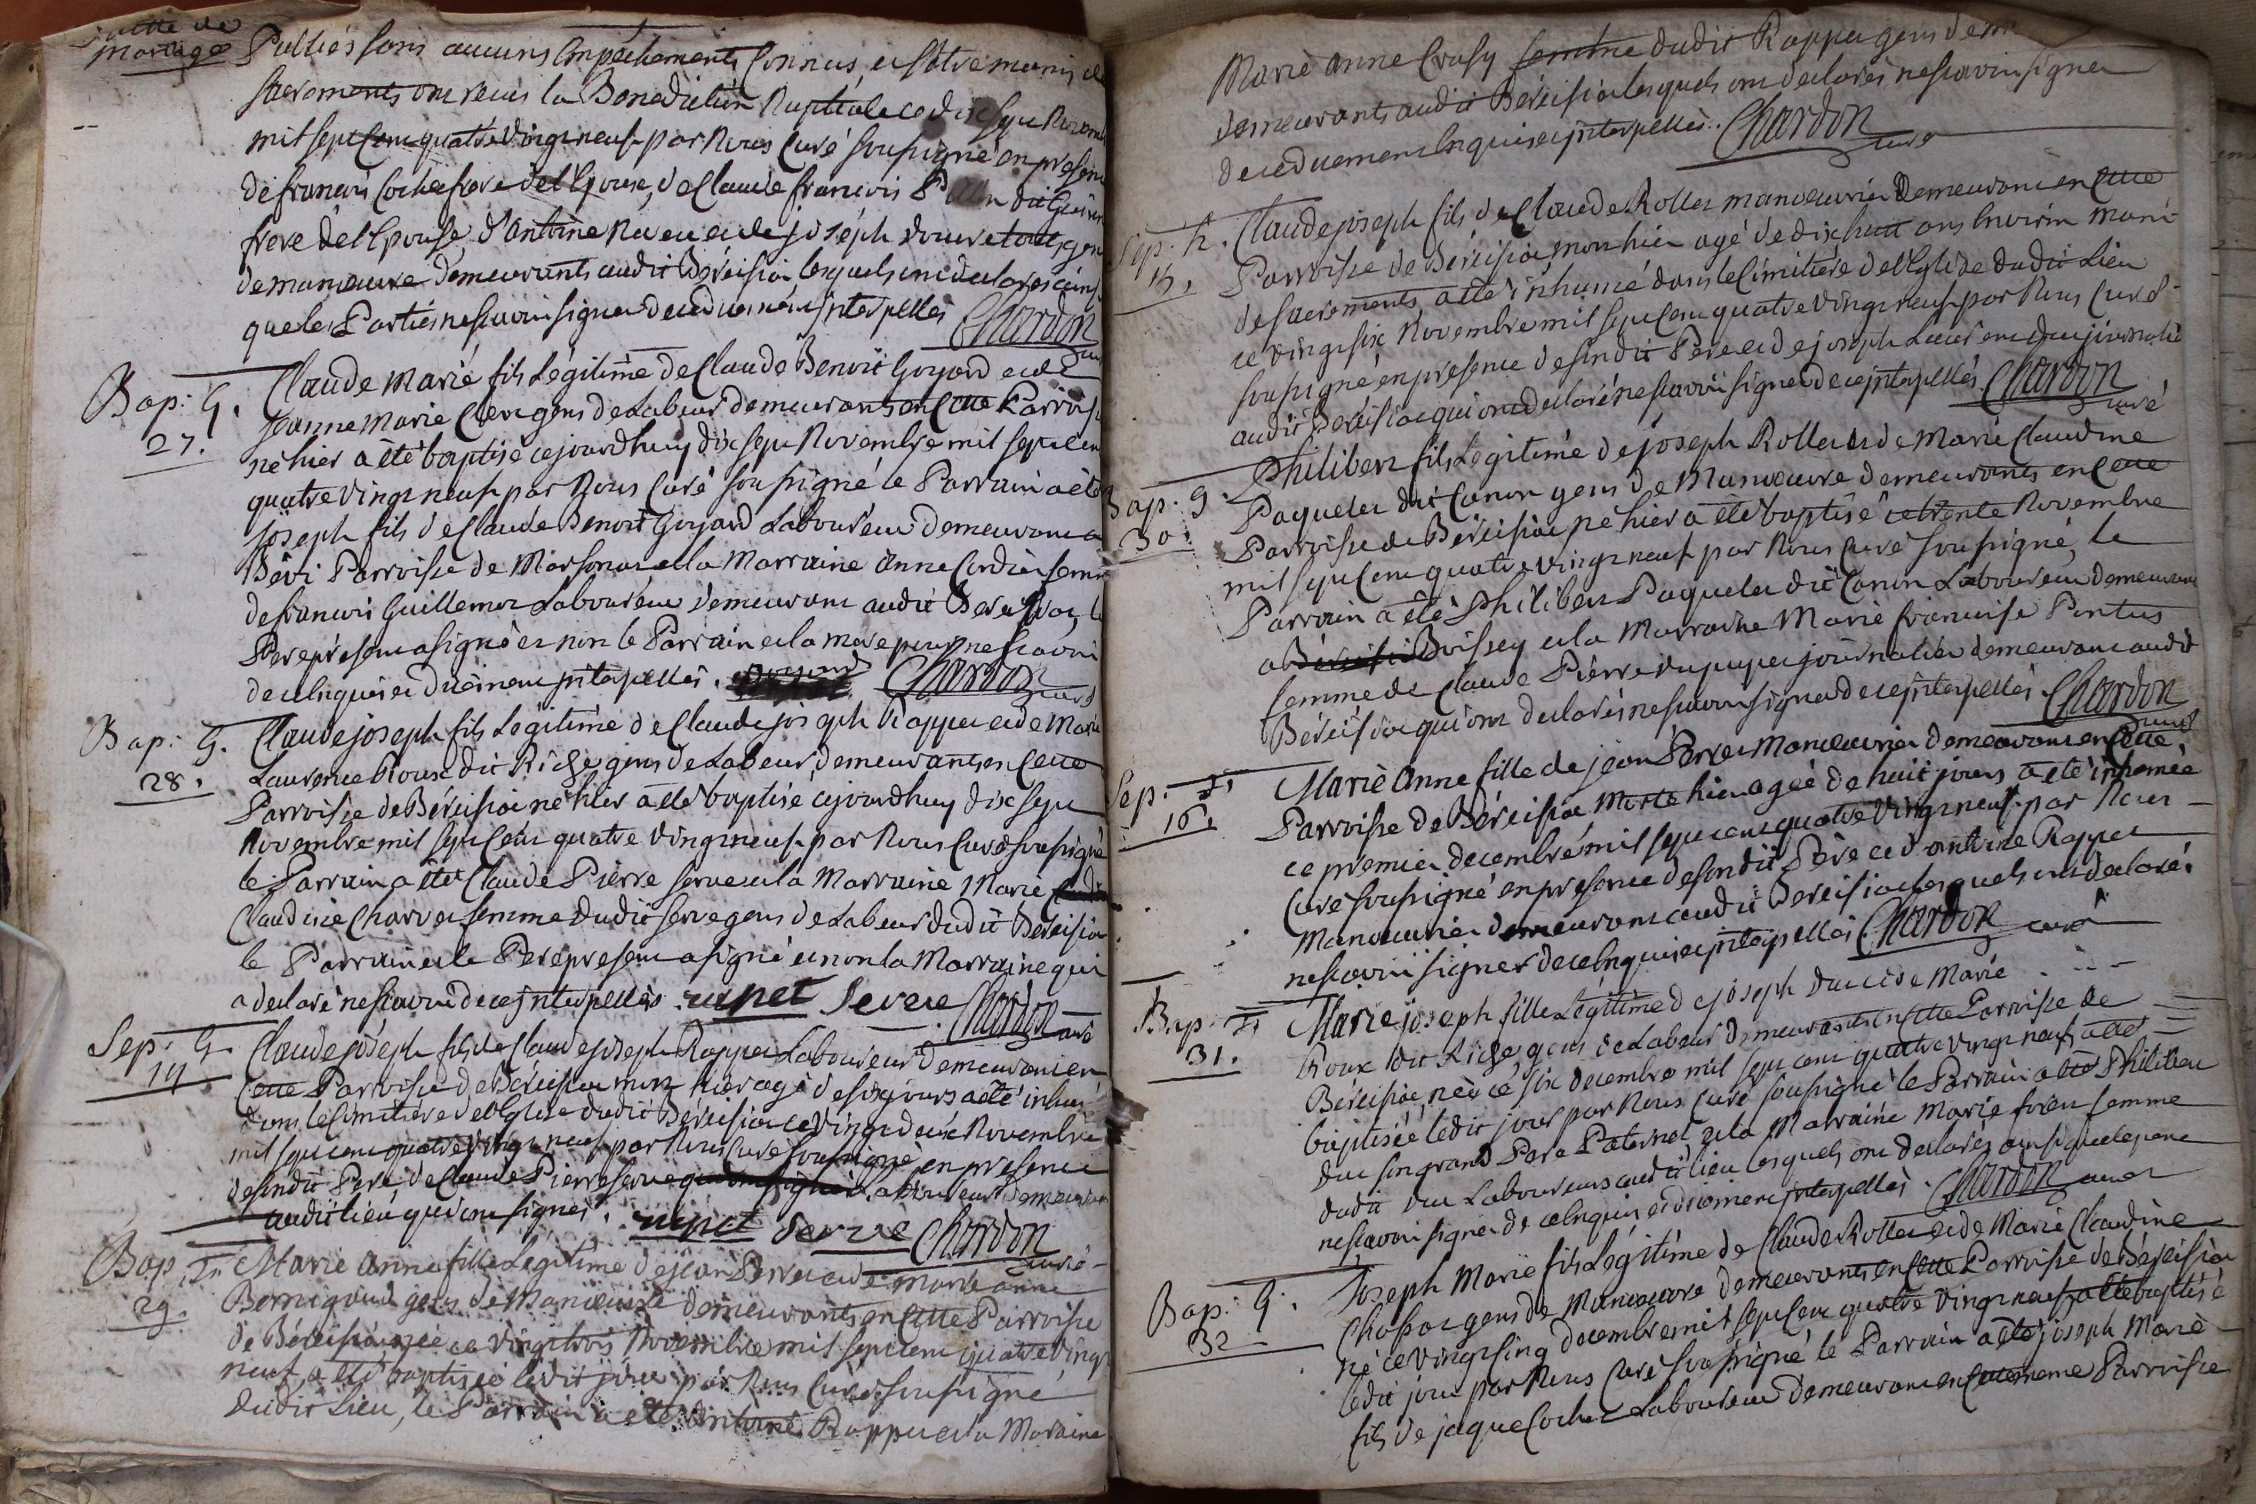 Suitte de
mariage
Publiés sans aucuns Empechements Connus, et s'etre munis des
sacrements ont recus la Benediction Nuptiale ce dix sept Novembre
mil sept Cent quatre vingt neuf par Nous Curé soussigné en presence
de francois Cochet frere de l'Epoux, de Claude francois
frere de l'Epouse, d'Antoine Neveu et de joseph touts gens
de manœuvre demeurants audit Béreisia lesquels ont declarés ainsi
que les Parties ne scavoir signer de ce duement interpellés Chardon
curé
Bap: G.
27.
Claude Marie fils Légitime de Claude Benoit Goyard et de
jeanne Marie Clerc gens de Labeur demeurants en Cette Parroisse
né hier a été baptisé cejourdhuy dix sept Novembre mil sept cent
quatre vingt neuf par Nous Curé soussigné le Parrain a été
joseph fils de Claude Benoit Goyard Laboureur demeurant a
Bévi Parroisse de Marsonas et la Marraine Anne Cordier femme
de francois Guillemot Laboureur demeurant audit Bereisia, le
Pere présent a signé et non le Parrain et la mare pour ne scavoir
de ce Enquis et duement interpellés. Goyard Chardon
curé
Bap: G.
28.
Claude joseph fils Légitime de Claude joseph Rappet et de Marie
Laurence Roux dit Riche gens de Labeur, demeurants en Cette
Parroisse de Béreisia né hier a été baptisé cejourdhuy dix sept
Novembre mil sept Cent quatre vingt neuf par Nous Curé soussigné
le Parrain a été Claude Pierre Serve et la Marraine Marie
Claudine Charvet femme dudit Serve gens de Labeur dudit Béreisia
le Parrain et le Pere present a signé et non la Marraine qui
a declaré ne scavoir de ce interpellés. rapet Serve Chardon
curé
Sep: G.
14
Claude joseph fils de Claude joseph Rappet Laboureur demeurant en
Cette Parroisse de Béreisia mort hier agé de six jours a été inhumé
dans le Cimitiere de l'Eglise dudit Béreisia ce vingt deux Novembre
mil sept cent quatre vingt neuf par Nous Curé soussigné en presence
de sondit Pere de Claude Pierre Serve qui ont signés Laboureur demeurant
audit lieu qui ont signés. rapet Serve Chardon
curé
Bap: F.
29.
Marie Anne fille Légitime de jean Perret et de Marie Anne
Bernigaud gens de Manœuvre demeurants en Cette Parroisse
de Béreisia née ce vingt trois Novembre mil sept cent quatre vingt
neuf, a été baptisée ledit jour par Nous Curé soussigné
dudit Lieu, le Parrain a été Antoine Rappet et la Maraine
Marie Anne Crusy femme dudit Rappet gens de
demeurants audit Béreisia lesquels ont declarés ne scavoir signer
de ce duement Enquis et interpellés. Chardon
curé
Sep: G.
15.
Claude joseph fils de Claude Rollet manœuvrier demeurant en Cette
Parroisse de Béreisia mort hier agé de dix huit ans Environ muni
de sacrements a été inhumé dans le Cimitiere de l'Eglise dudit Lieu
ce vingt six Novembre mil sept Cent quatre vingt neuf par Nous Curé
soussigné en presence de sondit Pere et de joseph Laurent journalié
audit Béreisia qui ont declaré ne scavoir signer de ce interpellés. Chardon
curé
Bap: G
30.
Philibert fils Légitime de joseph Rollet et de Marie Claudine
Paquelet dit Canon gens de Manœuvre demeurants en Cette
Parroisse de Béreisia né hier a été baptisé ce trente Novembre
mil sept Cent quatre vingt neuf par Nous Curé soussigné, le
Parrain a été Philibert Paquelet dit Canon Laboureur demeurant
a Béreisia Boissey et la Marraine Marie francoise Pontus
femme de Claude Pierre Dupuget journalier demeurant audit
Béreisia qui ont declarés ne scavoir signer de ce interpellés Chardon
curé
Sep: F.
16.
Marie Anne fille de jean Perret Manœuvrier demeurant en Cette
Parroisse de Béreisia Morte hier agée de huit jours a été inhumée
ce premier decembre mil sept cent quatre vingt neuf par Nous
Curé soussigné en presence de sondit Père et d'antoine Rappet
Manœuvrier demeurant audit Béreisia lesquels ont declarés
ne scavoir signer de ce Enquis et interpellés Chardon curé
Bap: F.
31.
Marie joseph fille Légitime de joseph Duc et de Marie
Roux dit Riche gens de Labeur demeurants en Cette Parroisse de
Béreisia, née ce six decembre mil sept cent quatre vingt neuf, a été
baptisée ledit jour par Nous Curé soussigné le Parrain a été Philibert
Duc son grand Pere Paternel et la Marraine Marie femme
dudit Duc Laboureurs audit lieu lesquels ont declarés ainsi que le pere
ne scavoir signer de ce Enquis et duement interpellés. Chardon curé
Bap: G.
32
Joseph Marie fils Légitime de Claude Rollet et de Marie Claudine
Chossat gens de Manœuvre demeurants en Cette Parroisse de Béreisia
né ce vingt cinq decembre mil sept Cent quatre vingt neuf a été baptisé
ledit jour par Nous Curé soussigné le Parrain a été joseph Marie
fils de jaque Cochet Laboureur demeurant en Cette meme Parroisse